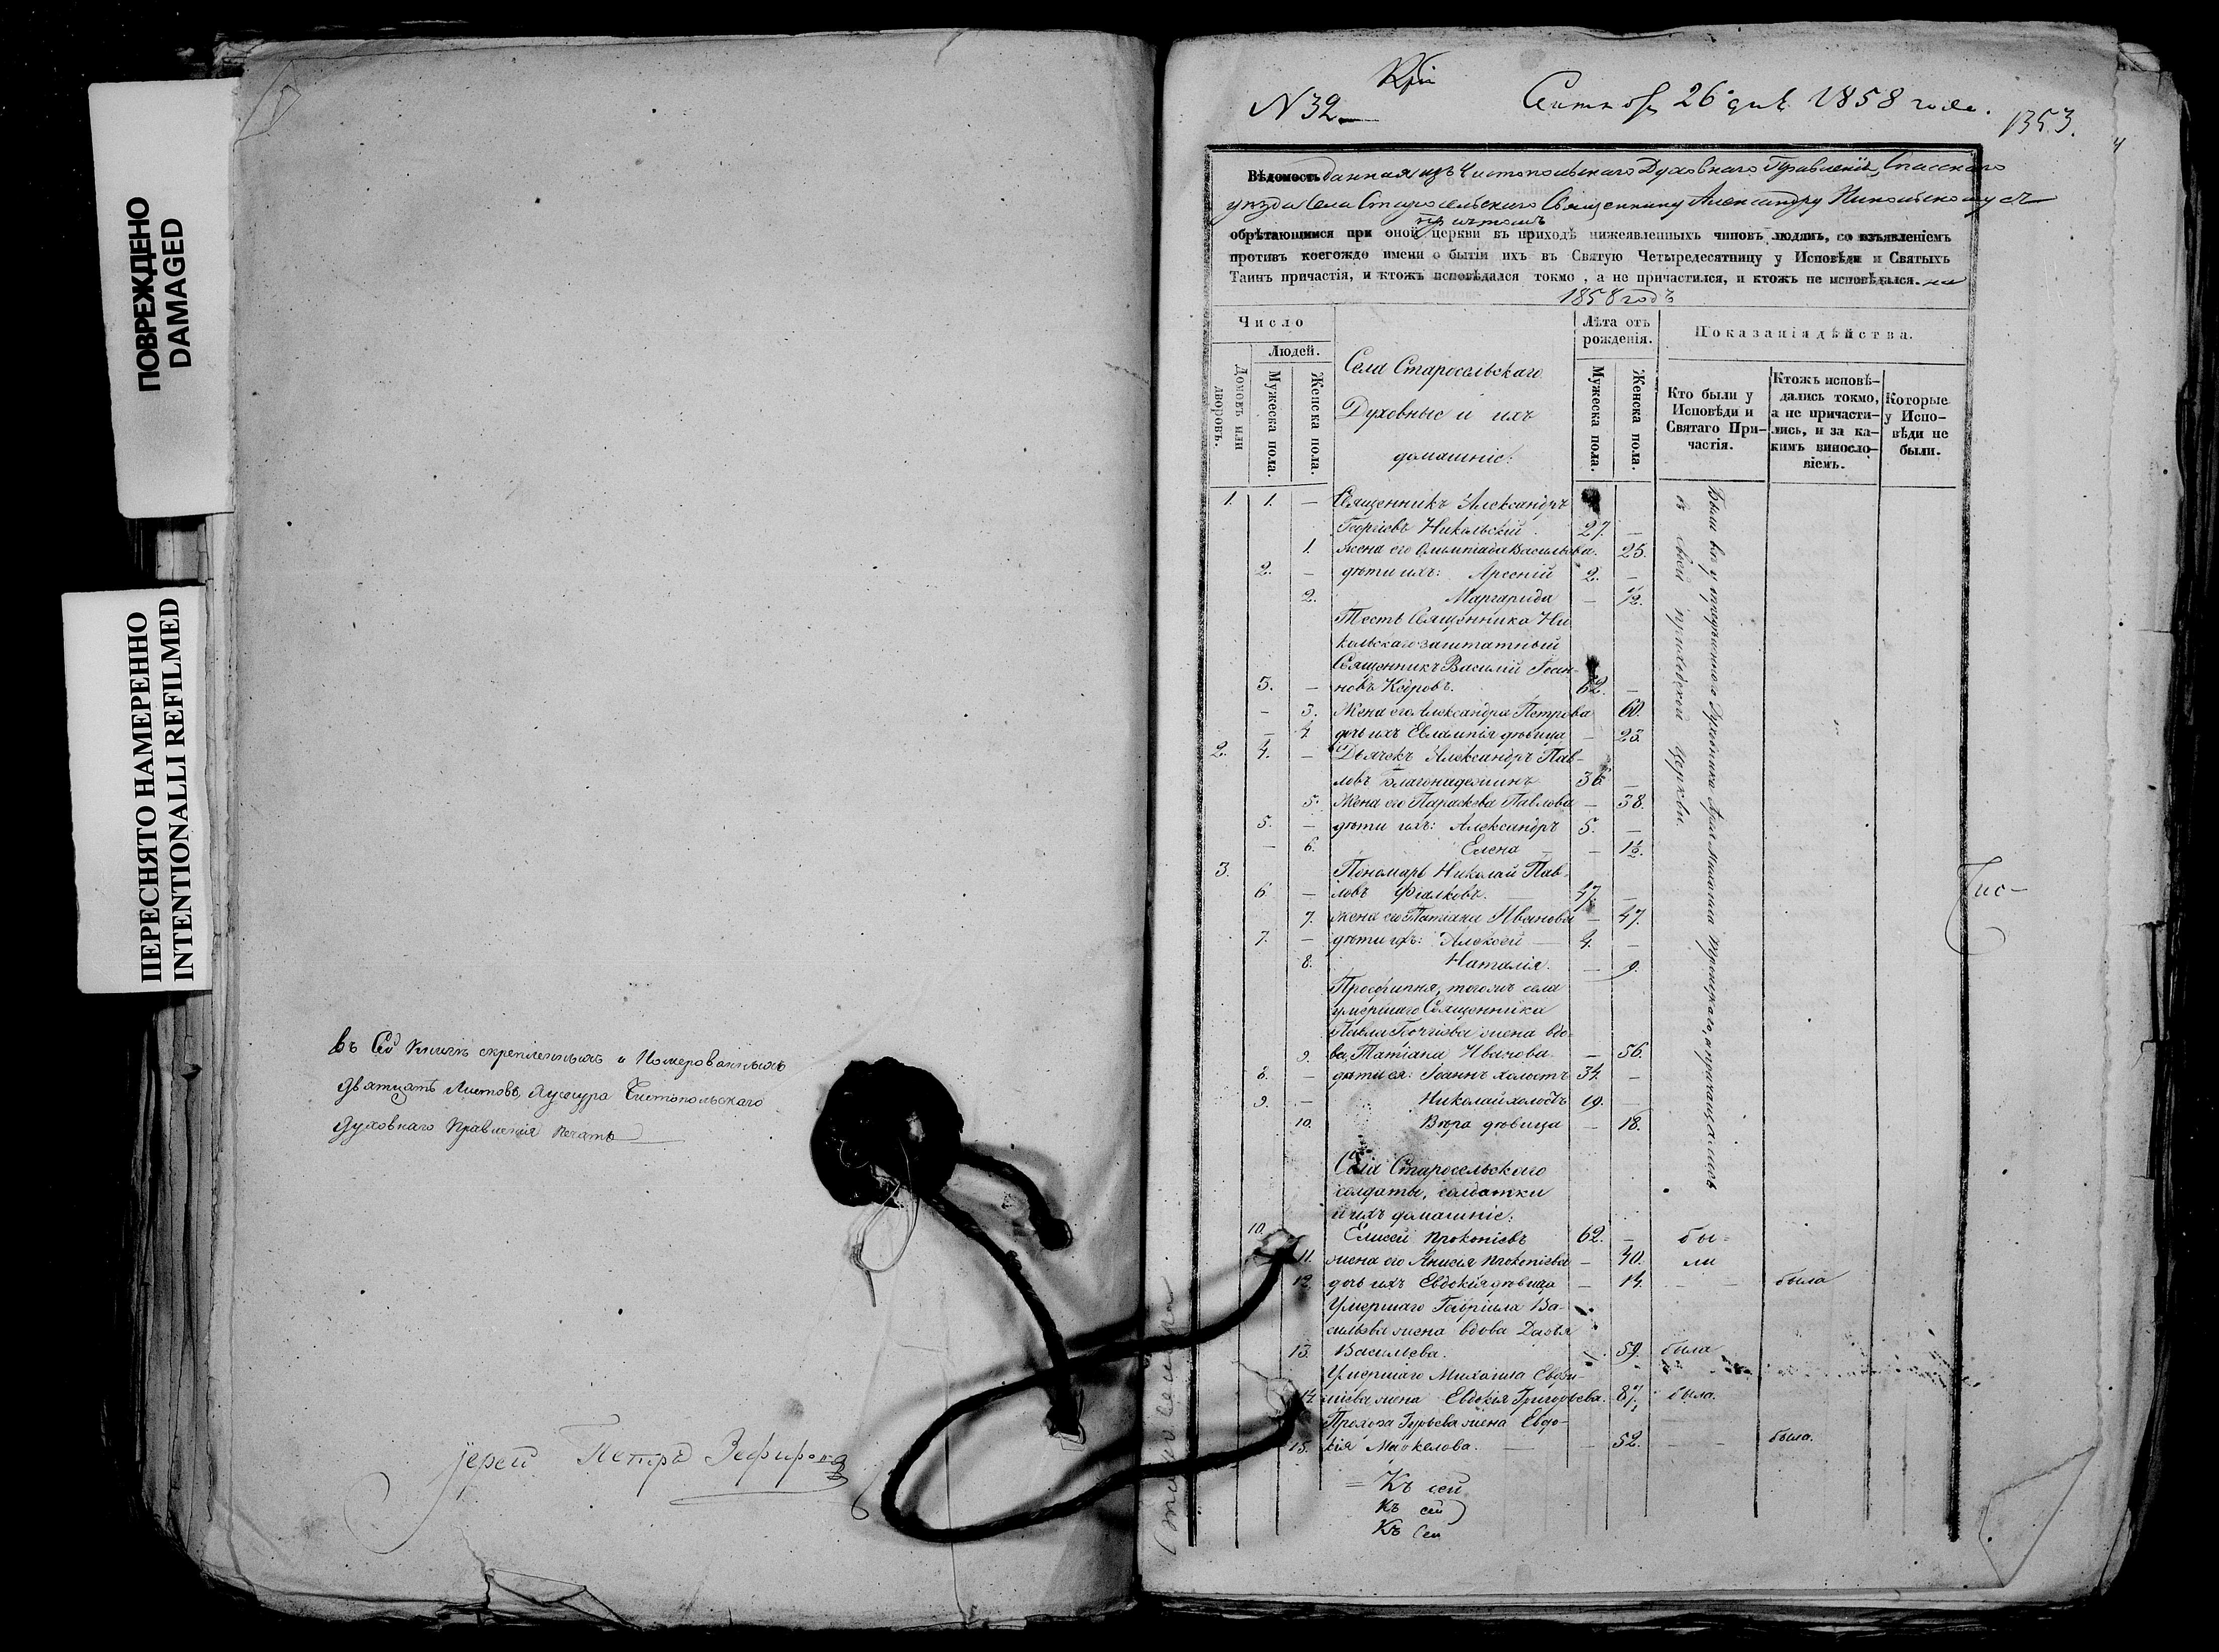 ПОВРЕЖДЕНО
DAMAGED
ПЕРЕСНЯТО НАМЕРЕННО
INTENTIONALLI REFILMED
въ Сей книгѣ скрепленныхъ и Номерованныхъ
Двятцать Листовъ,
Чистопольскаго
Духовнаго Правленія печать
Іерей Петръ Зефировъ
N 32
26 дня 1858 года.
1353.
Вѣдомость данная изъ Чистопольскаго Духовнаго Правленія, Спасскаго
уѣзда Села Старосельскаго Священнику Александру Никольскому съ
причтомъ
обрѣтающимся при оной церкви въ приходѣ нижеявленныхъ чиновъ людямъ, со изъявленіемъ
противъ коегождо имени о бытіи ихъ въ Святую Четыредесятницу у Исповѣди и Святыхъ
Таинъ причастія, и ктожъ исповѣдался токмо, а не причастился, и ктожъ не исповѣдался. на
1858 годъ
Число
Людей.
Домовъ или дворовъ.
Мужеска пола.
Женска пола.
Села Старосельскаго
Духовные и ихъ
домашніе:
Лѣта отъ
рожденія.
Мужеска пола.
Женска пола.
Показанія дѣйства.
Кто были у
Исповѣди и
Святаго При-
частія.
Ктожъ исповѣ-
дались токмо,
а не причасти-
лись, и за ка-
кимъ винословіемъ.
Которые
у Испо-
вѣди не
были.
1. 1. — Священникъ Александръ
Георгіевъ Никольскій 27. —
1. жена его Олимпіада Васильева. 25.
2. — дѣти ихъ: Арсеній 2. —
2. Маргарида — 1/2.
Тесть Священника Ни
кольскаго заштатный
Священникъ Василій Іоан-
3. — новъ Кедровъ. 62. —
— 3. Жена его Александра Петрова 60.
— 4. дочь ихъ Евлампія дѣвица — 23.
2. 4. — Дьячекъ Александръ Пав-
ловъ Благонадеждинъ 36 —
5. Жена его Параскева Павлова — 38.
5. — дѣти ихъ: Александръ 5. —
— 6. Елена — 1 1/2.
3. Пономарь Николай Пав-
6 — ловъ Фіалковъ. 47. —
7. жена его Татіана Иванова — 47.
7. — дѣти ихъ: Алексѣй 4. —
8. Наталія. — 9.
Просфирня, тогожъ села
умершаго Священника
Павла жена вдо-
9. ва, Татіана Иванова — 56.
8. — дѣти ея: Іоаннъ холостъ 34. —
9. — Николай холостъ 19. —
10. Вѣра дѣвица — 18.
Были въ у
въ своей приходской Церкви.
Села Старосельскаго
солдаты, солдатки
и ихъ домашніе:
10. Елисей Прокопіевъ 62. — бы-
11. жена его Анисія Прокопіева — 40. ли
12. дочь ихъ Евдокія дѣвица — 14. — — была
Умершаго Гавріила Ва-
сильева жена вдова Дарья
13. Васильева. 59. была
Умершаго Михаила Евфи-
14. міева жена Евдокія Григорьева. была
Прохора Гурьева жена Евдо-
15. кія Маркелова. — — 52. — — была.
Къ сей
Къ сей
Къ Сей
Чис-